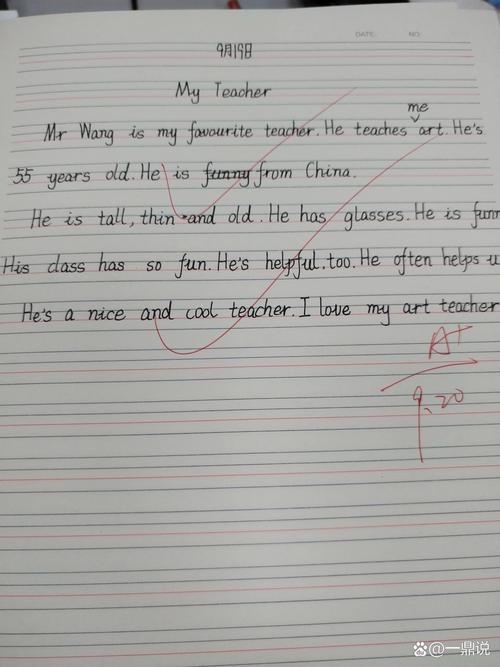 DATE: NO:
9月19日
My Teacher
me
Mr Wang is my favourite teacher. He teaches art. He's
55 years old. He is funny from China.
He is tall, thin and old. He has glasses. He is funn
His class has so fun. He's helpful. too. He often helps u
He's a nice and cool teacher. I love my art teacher
A+
9.20
@一鼎说